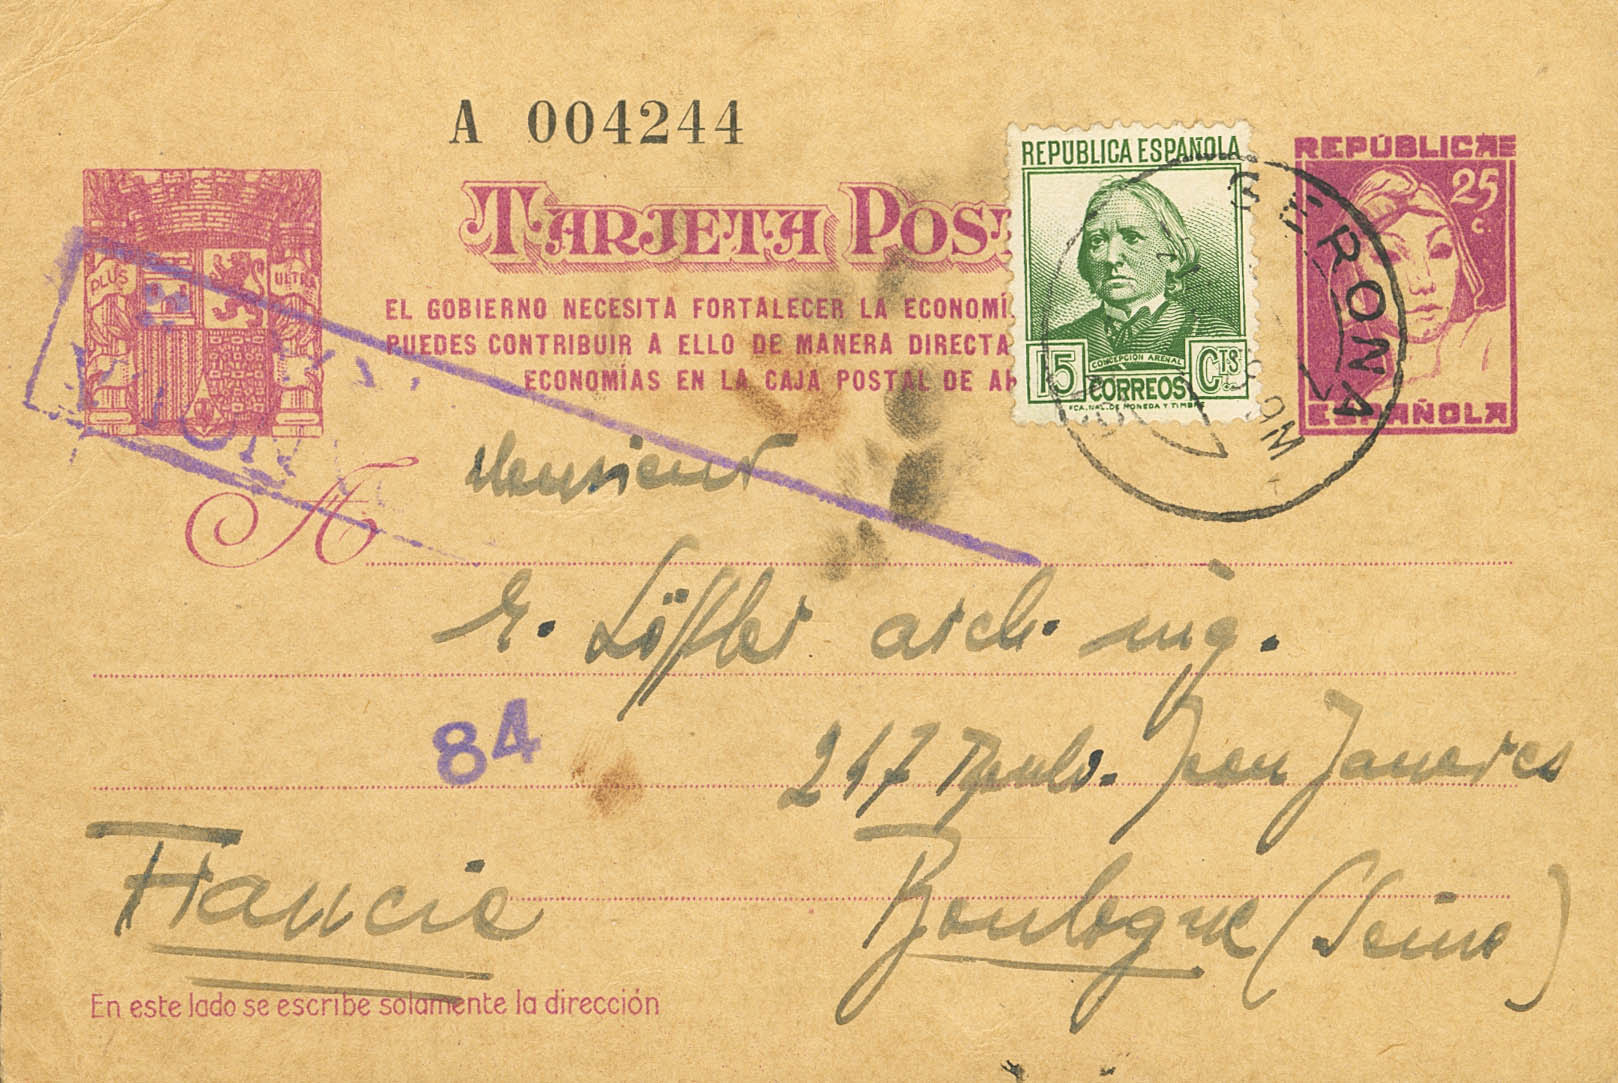 A 004244
TARJETA POS
EL GOBIERNO NECESITA FORTALECER LA ECONOMÍ
PUEDES CONTRIBUIR A ELLO DE MANERA DIRECTA
ECONOMÍAS EN LA CAJA POSTAL DE AH
PLUS ULTRA
REPÚBLICA ESPAÑOLA
15 CTS
CONCEPCIÓN ARENAL
CORREOS
FCA. NAL. DE MONEDA Y TIMBRE
REPÚBLICA
25 c.
ESPAÑOLA
GERONA
A
Monsieur
E. Löffler arch. ing.
84
247 Boulv. Jean Jaurès
Francie
Boulogne (Seine)
En este lado se escribe solamente la dirección